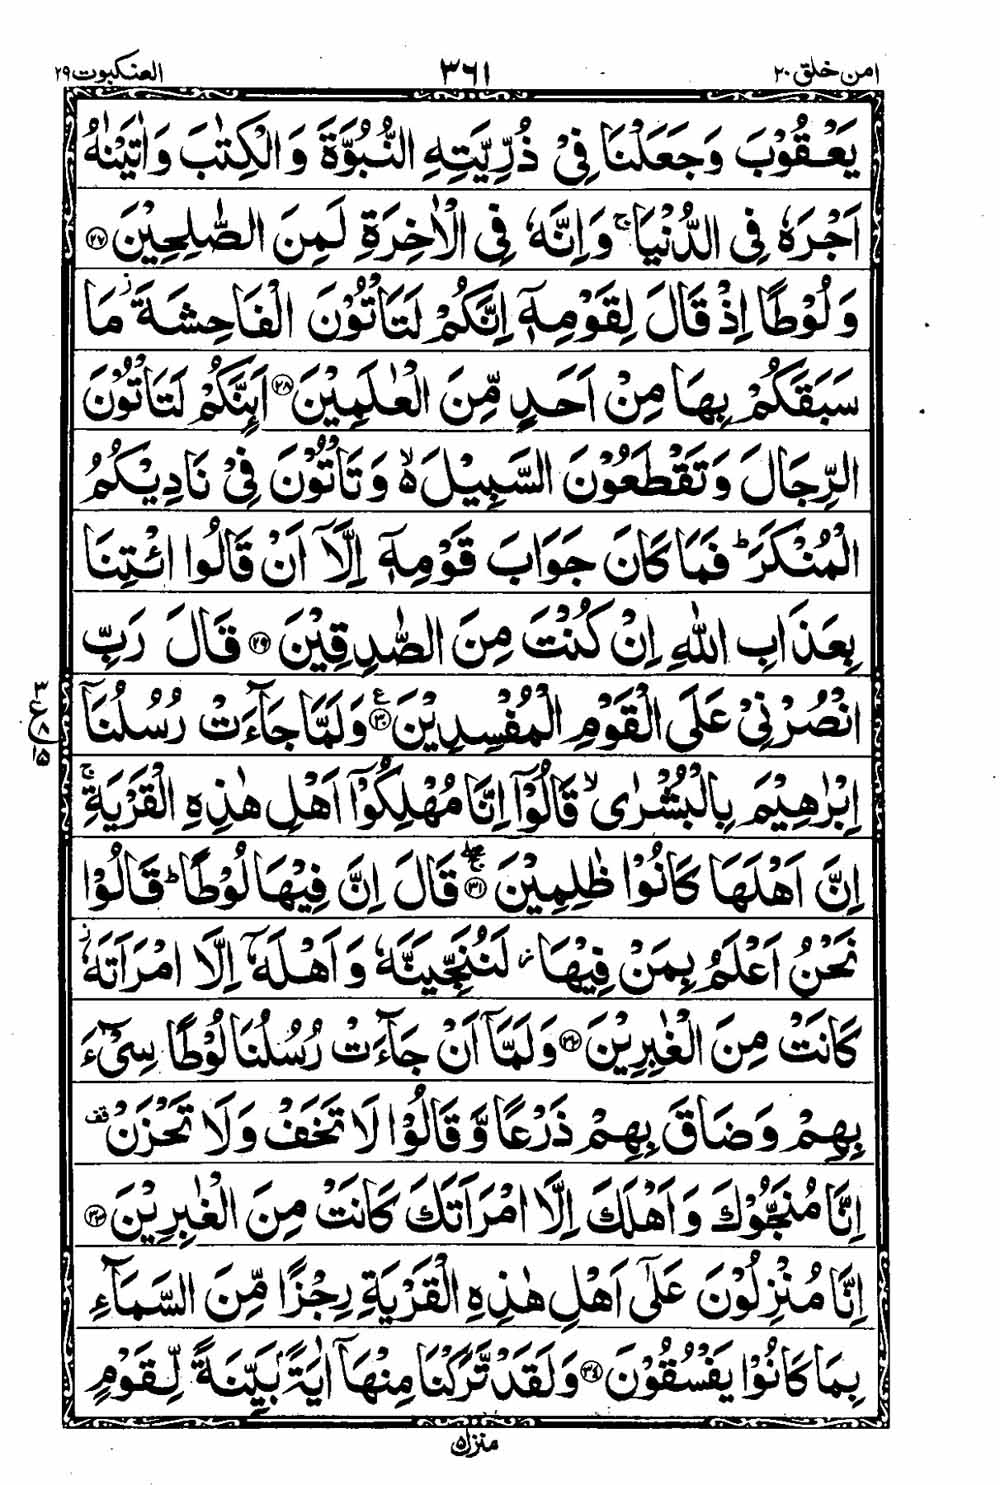 امن خلق ٢٠ ٣٦١ العنكبوت ٢٩
يَعْقُوْبَ وَجَعَلْنَا فِيْ ذُرِّيَّتِهِ النُّبُوَّةَ وَالْكِتٰبَ وَاٰتَيْنٰهُ
اَجْرَهٗ فِي الدُّنْيَاۚ وَاِنَّهٗ فِي الْاٰخِرَةِ لَمِنَ الصّٰلِحِيْنَ ﴿٢٧﴾
وَلُوْطًا اِذْ قَالَ لِقَوْمِهٖٓ اِنَّكُمْ لَتَاْتُوْنَ الْفَاحِشَةَ ز مَا
سَبَقَكُمْ بِهَا مِنْ اَحَدٍ مِّنَ الْعٰلَمِيْنَ ﴿٢٨﴾ اَئِنَّكُمْ لَتَاْتُوْنَ
الرِّجَالَ وَتَقْطَعُوْنَ السَّبِيْلَ ە ۙ وَتَاْتُوْنَ فِيْ نَادِيْكُمُ
الْمُنْكَرَ ؕ فَمَا كَانَ جَوَابَ قَوْمِهٖٓ اِلَّآ اَنْ قَالُوا ائْتِنَا
بِعَذَابِ اللّٰهِ اِنْ كُنْتَ مِنَ الصّٰدِقِيْنَ ﴿٢٩﴾ قَالَ رَبِّ
انْصُرْنِيْ عَلَى الْقَوْمِ الْمُفْسِدِيْنَ ﴿٣٠﴾ ع وَلَمَّا جَآءَتْ رُسُلُنَآ
٣ ع ٨ ١٥
اِبْرٰهِيْمَ بِالْبُشْرٰى ۙ قَالُوْٓا اِنَّا مُهْلِكُوْٓا اَهْلِ هٰذِهِ الْقَرْيَةِ ۚ
اِنَّ اَهْلَهَا كَانُوْا ظٰلِمِيْنَ ﴿٣١﴾ قَالَ اِنَّ فِيْهَا لُوْطًا ؕ قَالُوْا
نَحْنُ اَعْلَمُ بِمَنْ فِيْهَا لَنُنَجِّيَنَّهٗ وَاَهْلَهٗٓ اِلَّا امْرَاَتَهٗ ز
كَانَتْ مِنَ الْغٰبِرِيْنَ ﴿٣٢﴾ وَلَمَّآ اَنْ جَآءَتْ رُسُلُنَا لُوْطًا سِيْٓءَ
بِهِمْ وَضَاقَ بِهِمْ ذَرْعًا وَّقَالُوْا لَا تَخَفْ وَلَا تَحْزَنْ قف
اِنَّا مُنَجُّوْكَ وَاَهْلَكَ اِلَّا امْرَاَتَكَ كَانَتْ مِنَ الْغٰبِرِيْنَ ﴿٣٣﴾
اِنَّا مُنْزِلُوْنَ عَلٰٓى اَهْلِ هٰذِهِ الْقَرْيَةِ رِجْزًا مِّنَ السَّمَآءِ
بِمَا كَانُوْا يَفْسُقُوْنَ ﴿٣٤﴾ وَلَقَدْ تَّرَكْنَا مِنْهَآ اٰيَةًۢ بَيِّنَةً لِّقَوْمٍ
منزل ٥